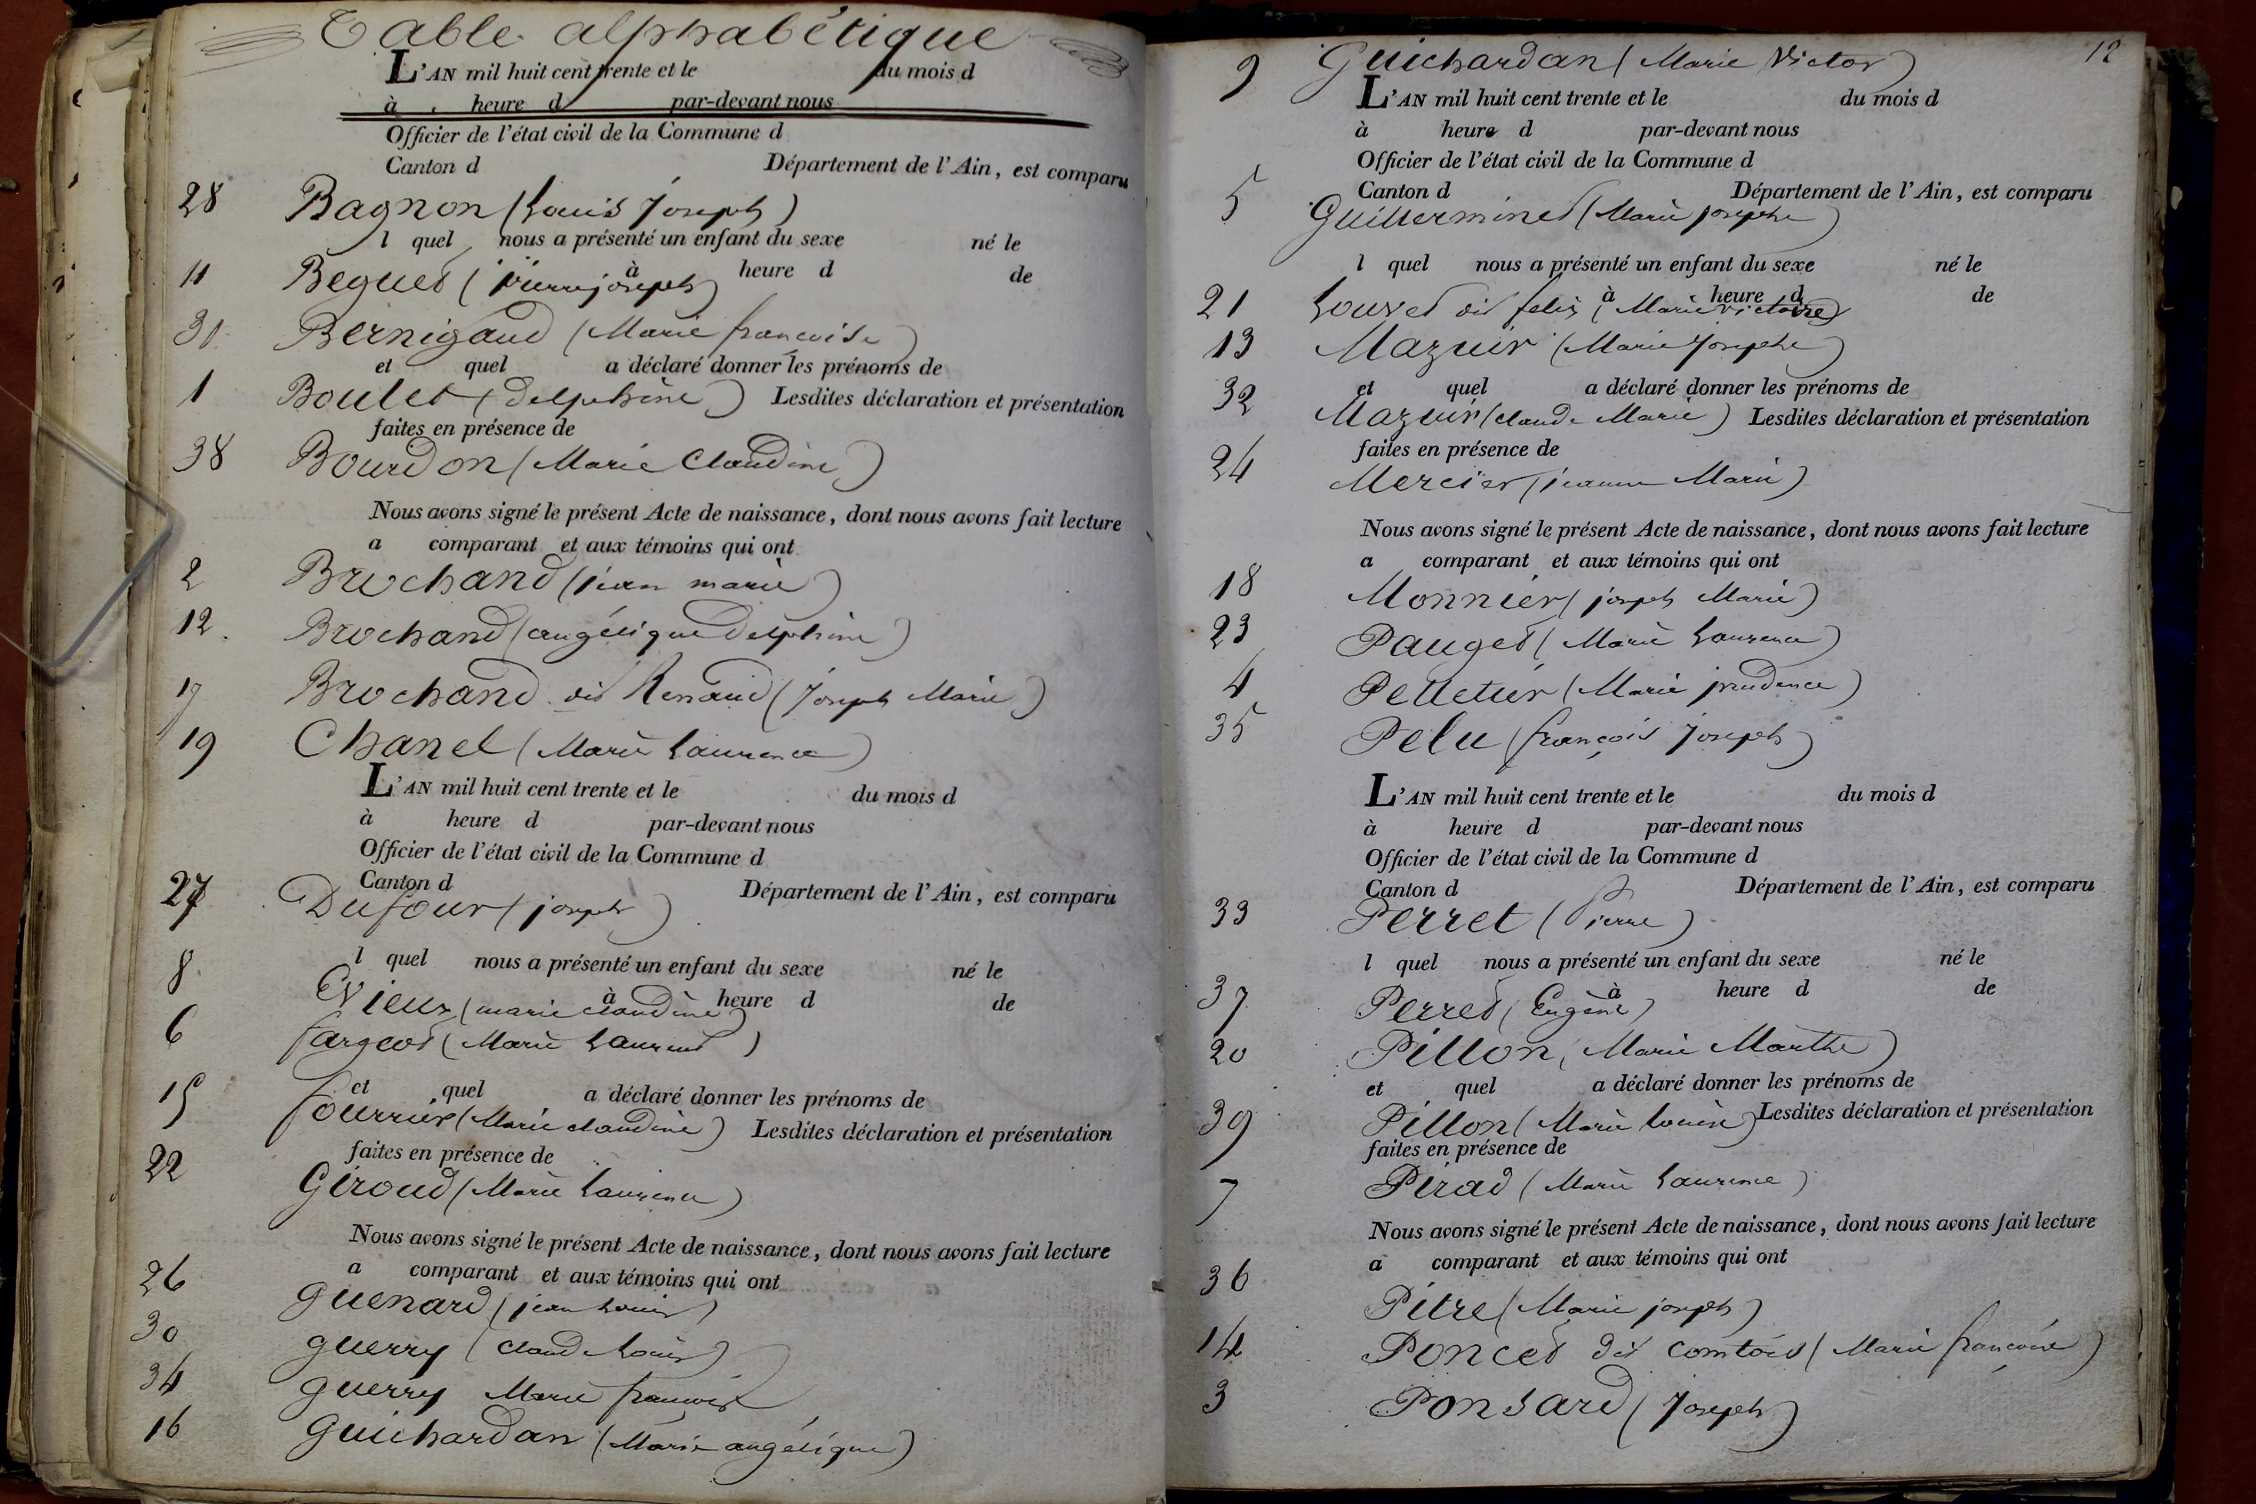 Table alphabétique
L'AN mil huit cent trente et le du mois d
à heure d par-devant nous
Officier de l'état civil de la Commune d
Canton d Département de l'Ain, est comparu
28 Bagnon (Louis Joseph)
l quel nous a présenté un enfant du sexe né le
à heure d de
11 Beguet (pierre joseph)
31 Bernigaud (Marie francoise)
et quel a déclaré donner les prénoms de
1 Boulet (delphine) Lesdites déclaration et présentation
faites en présence de
38 Bourdon (Marie Claudine)
Nous avons signé le présent Acte de naissance, dont nous avons fait lecture
a comparant et aux témoins qui ont
2 Brochand (jean marie)
12 Brochand (angélique delphine)
17 Brochand dit Renaud (Joseph Marie)
19 Chanel (Marie Laurence)
L'AN mil huit cent trente et le du mois d
à heure d par-devant nous
Officier de l'état civil de la Commune d
Canton d Département de l'Ain, est comparu
27 Dufour (joseph)
l quel nous a présenté un enfant du sexe né le
à heure d de
8 Evieux (marie claudine)
6 fargeot (Marie Laurent)
et quel a déclaré donner les prénoms de
15 fourrier (Marie claudine) Lesdites déclaration et présentation
faites en présence de
22 Giroud (Marie Laurence)
Nous avons signé le présent Acte de naissance, dont nous avons fait lecture
a comparant et aux témoins qui ont
26 guenard (jean Louis)
30 guerry (Claude Louis)
34 guerry Marie francois
16 guichardan (Marie angélique)
12
9 Guichardan (Marie Victor)
L'AN mil huit cent trente et le du mois d
à heure d par-devant nous
Officier de l'état civil de la Commune d
Canton d Département de l'Ain, est comparu
5 Guillerminet (Marie josephe)
l quel nous a présenté un enfant du sexe né le
à heure d de
21 Louvet dit felix (Marie victoire)
13 Mazuir (Marie Josephe)
et quel a déclaré donner les prénoms de
32 Mazuir (Claude Marie) Lesdites déclaration et présentation
faites en présence de
24 Mercier (jeanne Marie)
Nous avons signé le présent Acte de naissance, dont nous avons fait lecture
a comparant et aux témoins qui ont
18 Monnier (joseph Marie)
23 Pauget (Marie Laurence)
4 Pelletier (Marie prudence)
35 Pelu (françois Joseph)
L'AN mil huit cent trente et le du mois d
à heure d par-devant nous
Officier de l'état civil de la Commune d
Canton d Département de l'Ain, est comparu
33 Perret (Pierre)
l quel nous a présenté un enfant du sexe né le
à heure d de
37 Perret (Eugène)
20 Pillon (Marie Marthe)
et quel a déclaré donner les prénoms de
39 Pillon (Marie Louise) Lesdites déclaration et présentation
faites en présence de
7 Pirad (Marie Laurence)
Nous avons signé le présent Acte de naissance, dont nous avons fait lecture
a comparant et aux témoins qui ont
36 Pitre (Marie joseph)
14 Poncet dit comtois (Marie françoise)
3 Ponsard (Joseph)